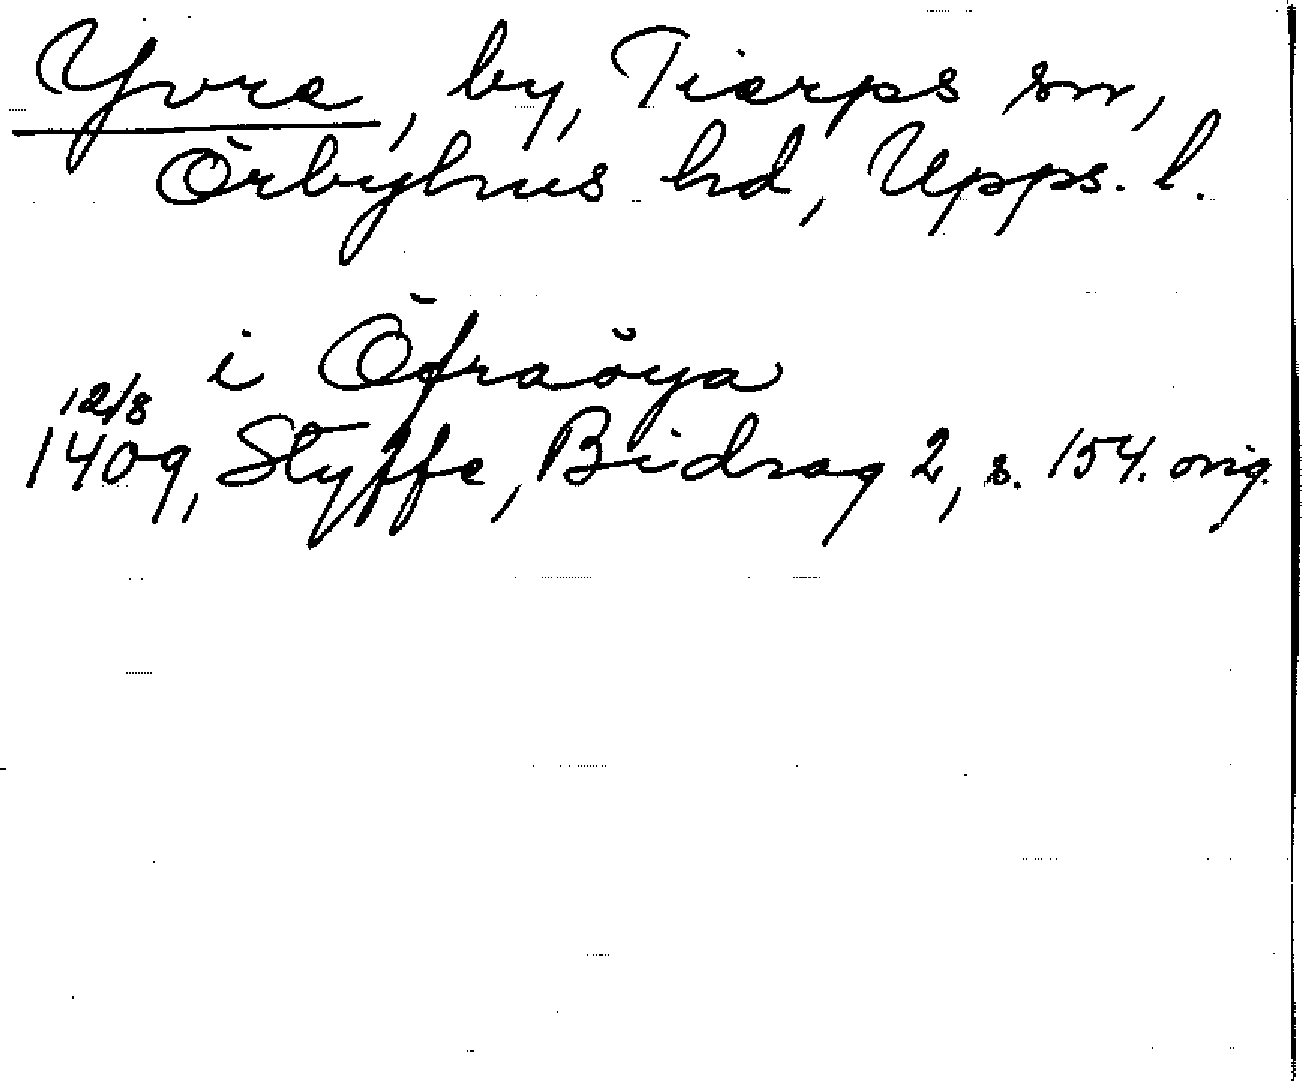 Yvre, by, Tierps sn,
Örbyhus hd, Upps. l.
i Öfraöya
12/8
1409, Styffe, Bidrag 2, s. 154. orig.